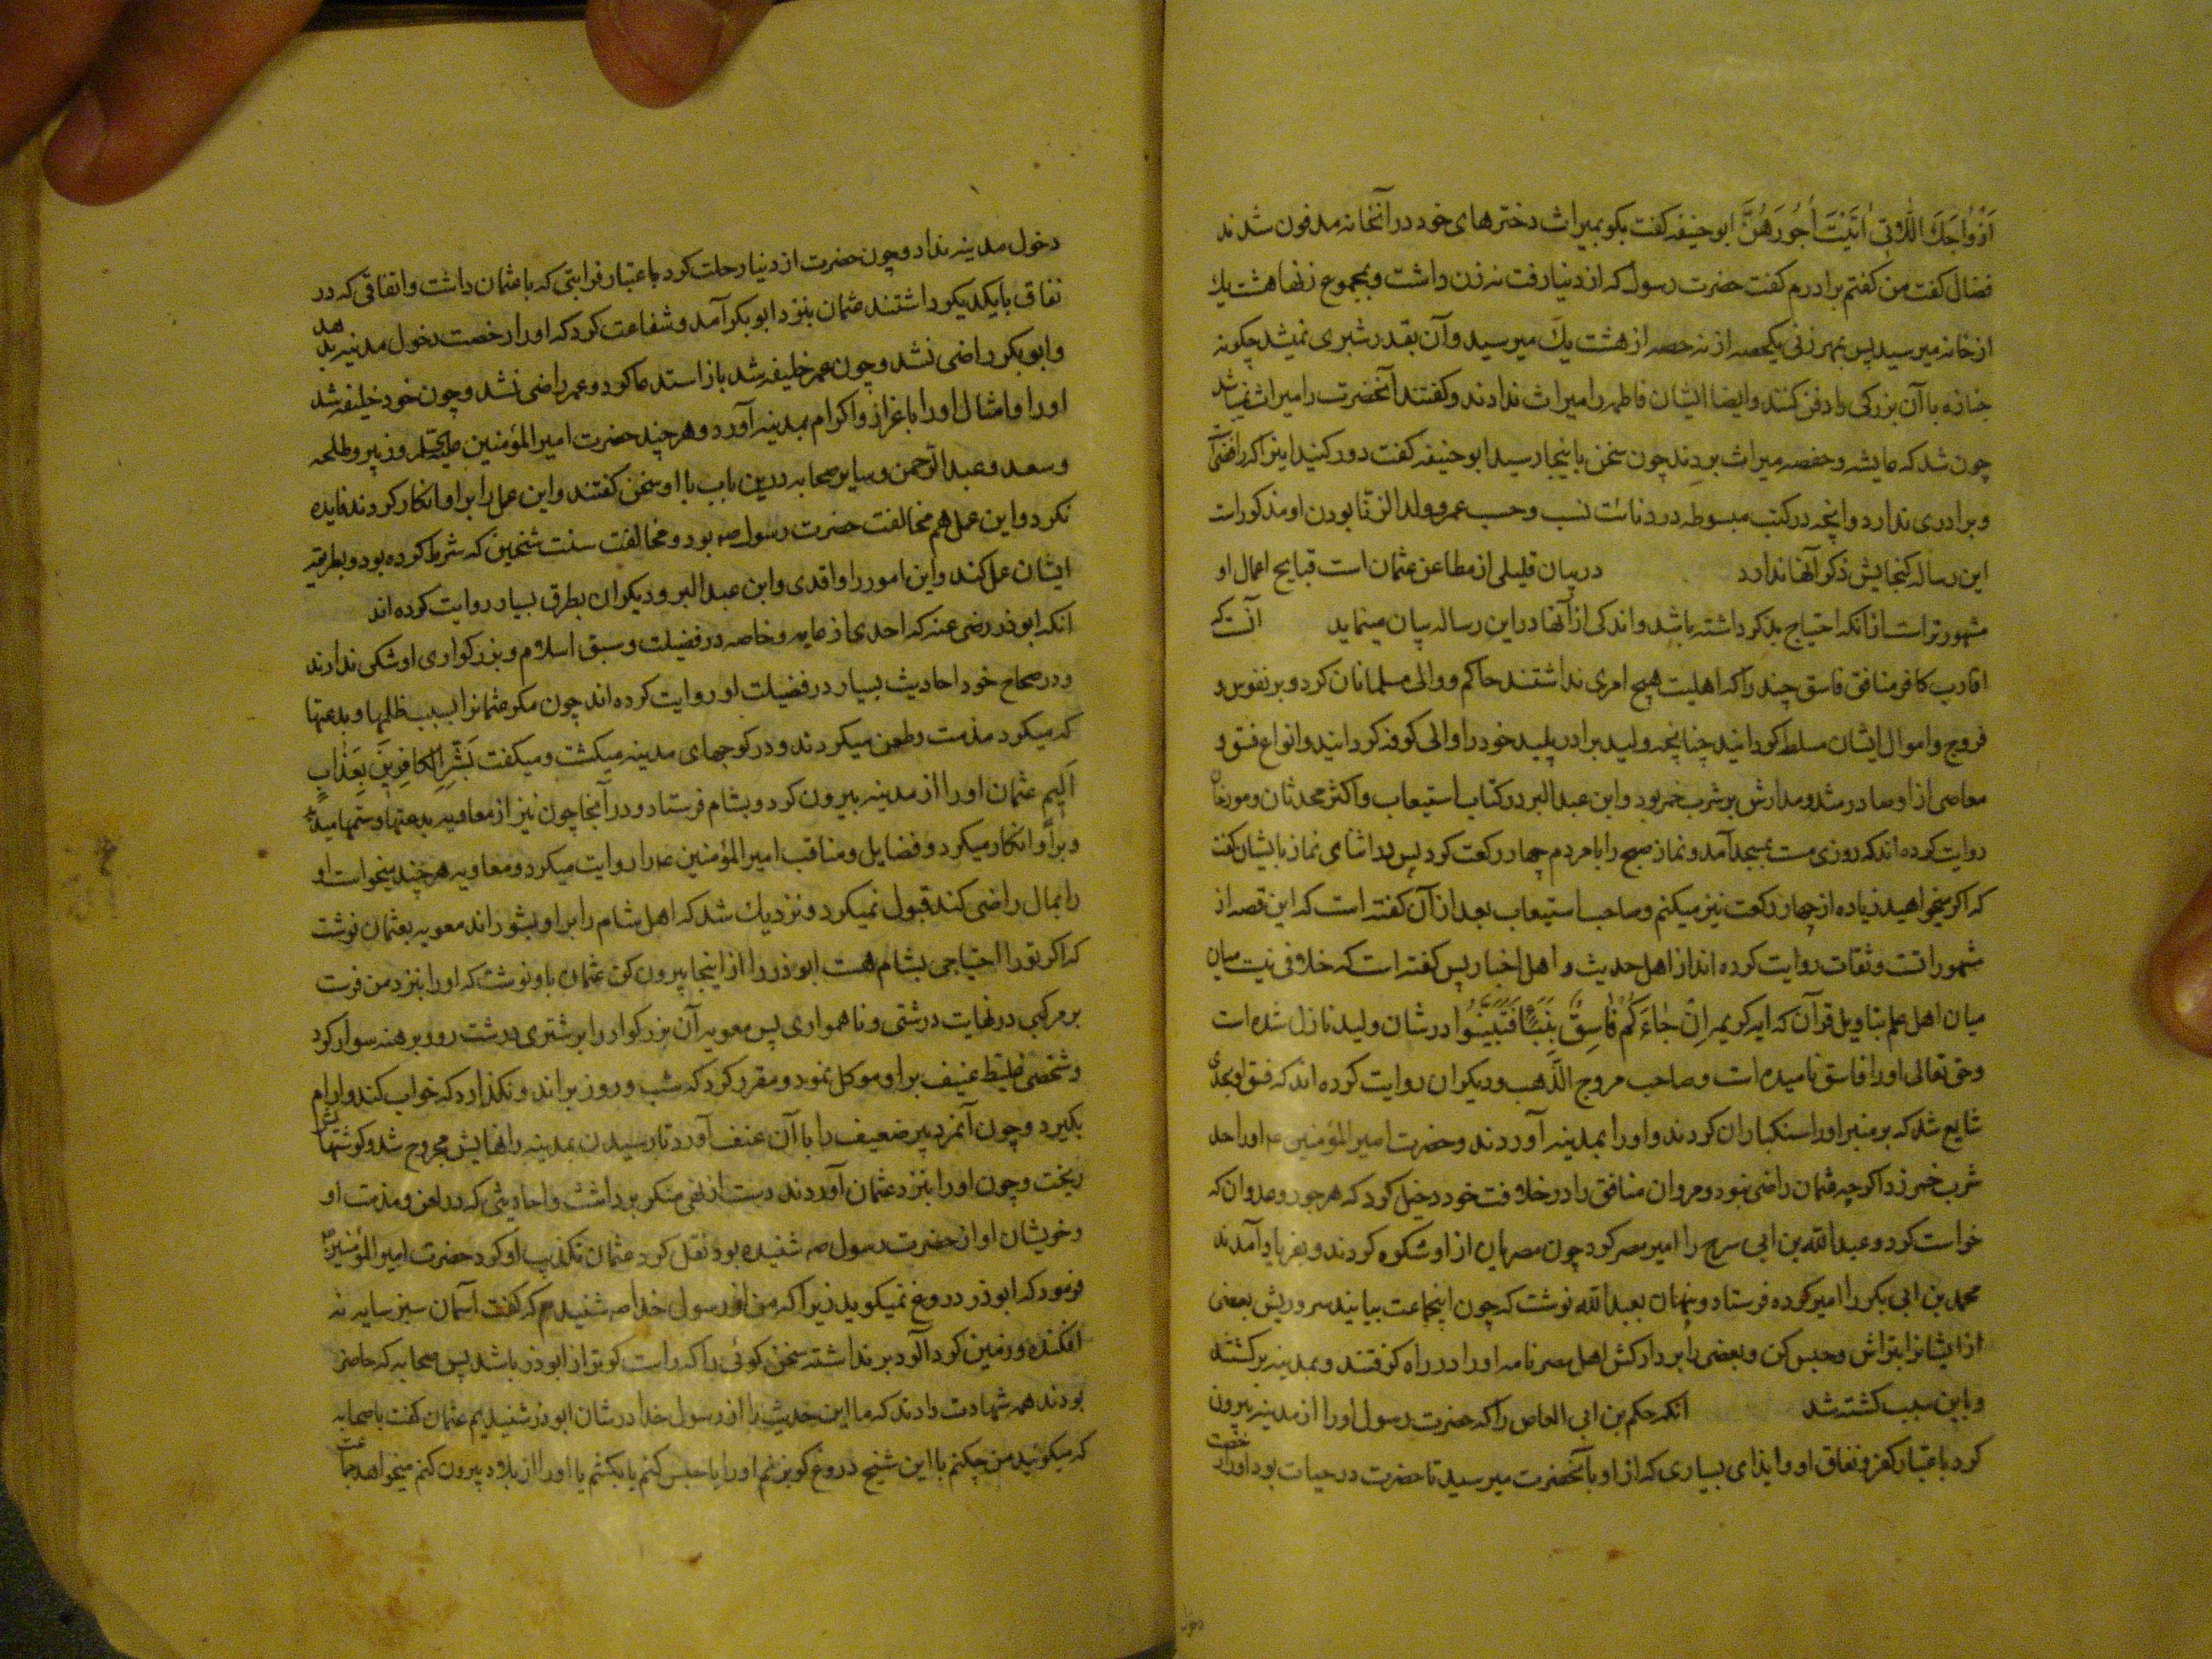 اَزْوٰاجَكَ اللّٰاتِی اٰتَیْتَ اُجُورَهُنَّ ابو حنیفه گفت بگو بمیراث دخترهای خود در آنخانه مدفون شدند
فضال گفت من گفتم برادرم گفت حضرت رسول که از دنیا رفت نه زن داشت و بمجموع زنها هشت یك
از خانه میرسید پس بهر زنی یکحصه از نه حصه از هشت یك میرسید و آن بقدر شبری نمیشد چگونه
جنازه با آن بزرگی را دفن کنند و ایضا ایشان فاطمه را میراث ندادند و گفتند آنحضرت را میراث نمیباشد
چون شد که عایشه و حفصه میراث بردند چون سخن باینجا رسید ابو حنیفه گفت دور کنید اینرا که رافضی است
و برادری ندارد و آنچه در کتب مبسوطه در دنائت نسب و حسب عمر و ولد الزنا بودن او مذکور است
این رساله گنجایش ذکر آنها ندارد در بیان قلیلی از مطاعن عثمان است قبایح اعمال او
مشهورتر است از آنکه احتیاج بذکر داشته باشد و اندکی از آنها در این رساله بیان مینماید آنست که
اقارب کافر منافق فاسق چند را که اهلیت هیچ امری نداشتند حاکم و والی مسلمانان کرد و بر نفوس و
فروج و اموال ایشان مسلط گردانید چنانچه ولید برادر پلید خود را والی کوفه گردانید و انواع فسق و
معاصی از او صادر شد و مدارش بر شرب خمر بود و ابن عبد البر در کتاب استیعاب و اکثر محدثان و مورخان
روایت کرده اند که روزی مست بمسجد آمد و نماز صبح را با مردم چهار رکعت کرد پس در اثنای نماز بایشان گفت
که اگر میخواهید زیاده از چهار رکعت نیز میکنم و صاحب استیعاب بعد از آن گفته است که این قصه از
مشهوراتست و ثقات روایت کرده اند از اهل حدیث و اهل اخبار پس گفته است که خلافی نیست میان
میان اهل علم بتاویل قرآن که ایه کریمه اِنْ جٰاءَكُمْ فٰاسِقٌ بِنَبَأٍ فَتَبَیَّنُوا در شان ولید نازل شده است
و حق تعالی او را فاسق نامیده است و صاحب مروج الذهب و دیگران روایت کرده اند که فسق او بحدی
شایع شد که بر منبر او را سنگباران کردند و او را بمدینه آوردند و حضرت امیر المؤمنین ع او را حد
شرب خمر زد اگرچه عثمان راضی نبود و مروان منافق را در خلافت خود دخیل کرد که هر جور و عدوان که
خواست کرد و عبد الله بن ابی سرح را امیر مصر کرد چون مصریان از او شکوه کردند و بفریاد آمدند
محمد بن ابی بکر را امیر کرده فرستاد و پنهان بعبد الله نوشت که چون اینجماعت بیایند سر و ریش بعضی
از ایشانرا بتراش و حبس کن و بعضی را بردار کش اهل مصر نامه او را در راه گرفتند و بمدینه برگشتند
و باین سبب کشته شد انکه حکم بن ابی العاص را که حضرت رسول او را از مدینه بیرون
کرد باعتبار کفر و نفاق او و ایذای بسیاری که از او بآنحضرت میرسید تا حضرت در حیات بود او را رخصت
دخول
دخول مدینه نداد و چون حضرت از دنیا رحلت کرد باعتبار قرابتی که با عثمان داشت و اتفاقی که در
نفاق با یکدیگر داشتند عثمان بنزد ابو بکر آمد و شفاعت کرد که او را رخصت دخول مدینه بدهد
و ابو بکر راضی نشد و چون عمر خلیفه شد باز استدعا کرد و عمر راضی نشد و چون خود خلیفه شد
او را و امثال او را باعزاز و اکرام بمدینه آورد و هر چند حضرت امیر المؤمنین و زبیر و طلحه
و سعد و عبد الرحمن و سایر صحابه در این باب با او سخن گفتند و این عمل را بر او انکار کردند فایده
نکرد و این عمل هم مخالفت حضرت رسول ص بود و مخالفت سنت شیخین که شرط کرده بود و بطریقه
ایشان عمل کند و این امور را واقدی و ابن عبد البر و دیگران بطرق بسیار روایت کرده اند
انکه ابوذر رضی عنه که احدی از عامه و خاصه در فضیلت و سبق اسلام و بزرگواری او شکی ندارند
و در صحاح خود احادیث بسیار در فضیلت او روایت کرده اند چون مکرر عثمانرا بسبب ظلمها و بدعتها
که میکرد مذمت و طعن میکردند و در کوچهای مدینه میگشت و میگفت بَشِّرِ الْکٰافِرینَ بِعَذٰابٍ
اَلیمٍ عثمان او را از مدینه بیرون کرد و بشام فرستاد و در آنجا چون نیز از معاویه بدعتها و ستمها میدید
و بر او انکار میکرد و فضایل و مناقب امیر المؤمنین ع را روایت میکرد و معاویه هر چند میخواست او
را بمال راضی کند قبول نمیکرد و نزدیك شد که اهل شام را بر او بشوراند معویه بعثمان نوشت
که اگر تو را احتیاجی بشام هست ابوذر را از اینجا بیرون کن عثمان باو نوشت که او را بنزد من فرست
بر مرکبی در نهایت درشتی و ناهمواری پس معویه آن بزرگوار را بر شتری درشت رو برهنه سوار کرد
و شخصی غلیظ عنیف بر او موکل نمود و مقرر کرد که شب و روز براند و نگذارد که خواب کند و ارام
بگیرد و چون آنمرد پیر ضعیف را با آن عنف آورد تا رسیدن بمدینه رانهایش مجروح شد و گوشتهاش
ریخت و چون او را بنزد عثمان آوردند دست از نهی منکر برنداشت و احادیثی که در لعن و مذمت او
و خویشان او از حضرت رسول ص شنیده بود نقل کرد عثمان تکذیب او کرد حضرت امیر المؤمنین ع
فرمود که ابوذر دروغ نمیگوید زیرا که من از رسول خدا ص شنیدم که گفت آسمان سبز سایه نه
افکنده و زمین گرد آلود برنداشته سخن گوئی را که راست گوتر از ابوذر باشد پس صحابه که حاضر
بودند همه شهادت دادند که ما این حدیث را از رسول خدا در شان ابوذر شنیدیم عثمان گفت با صحابه
که میگوئید من چکنم با این شیخ دروغ گو بزنم او را یا حبس کنم یا بکشم یا او را از بلاد بیرون کنم میخواهد جماعت